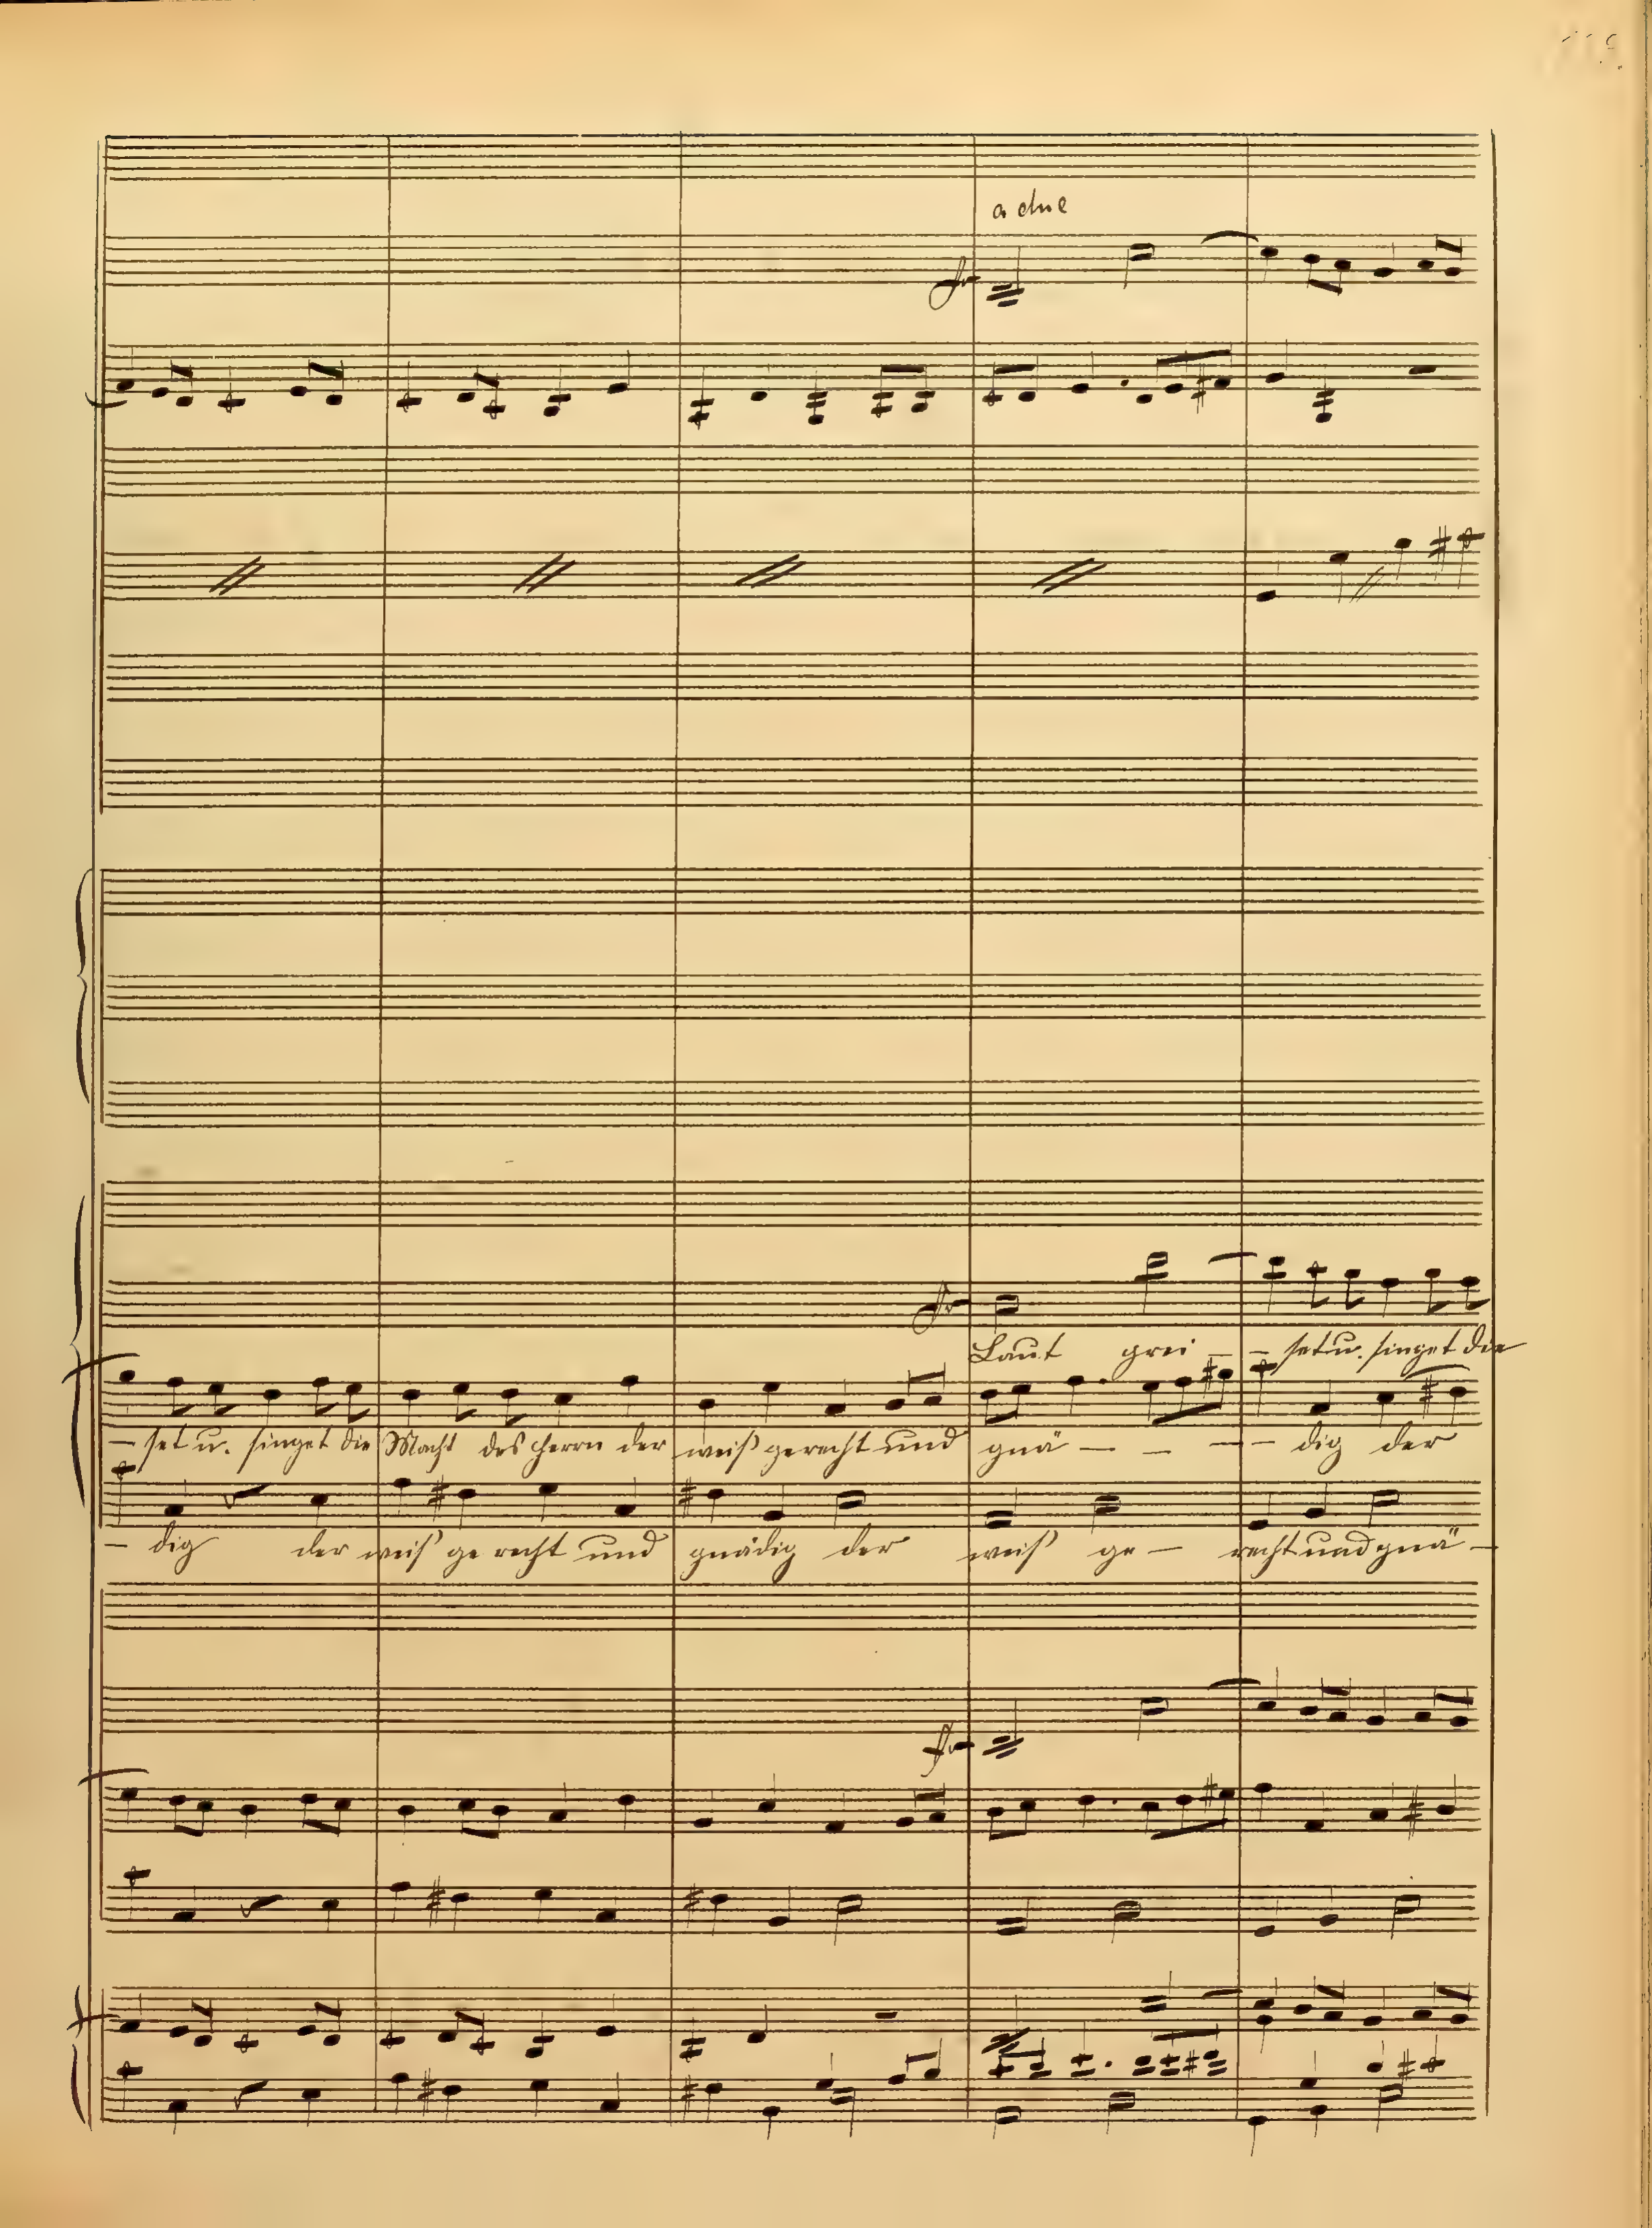 a due
Laut prei - - set u. singet die
- set u. singet die Macht des Herrn der weiß gerecht und gnä - - - - dig der
- dig der weiß ge recht und gnädig der weiß ge - recht und gnä -